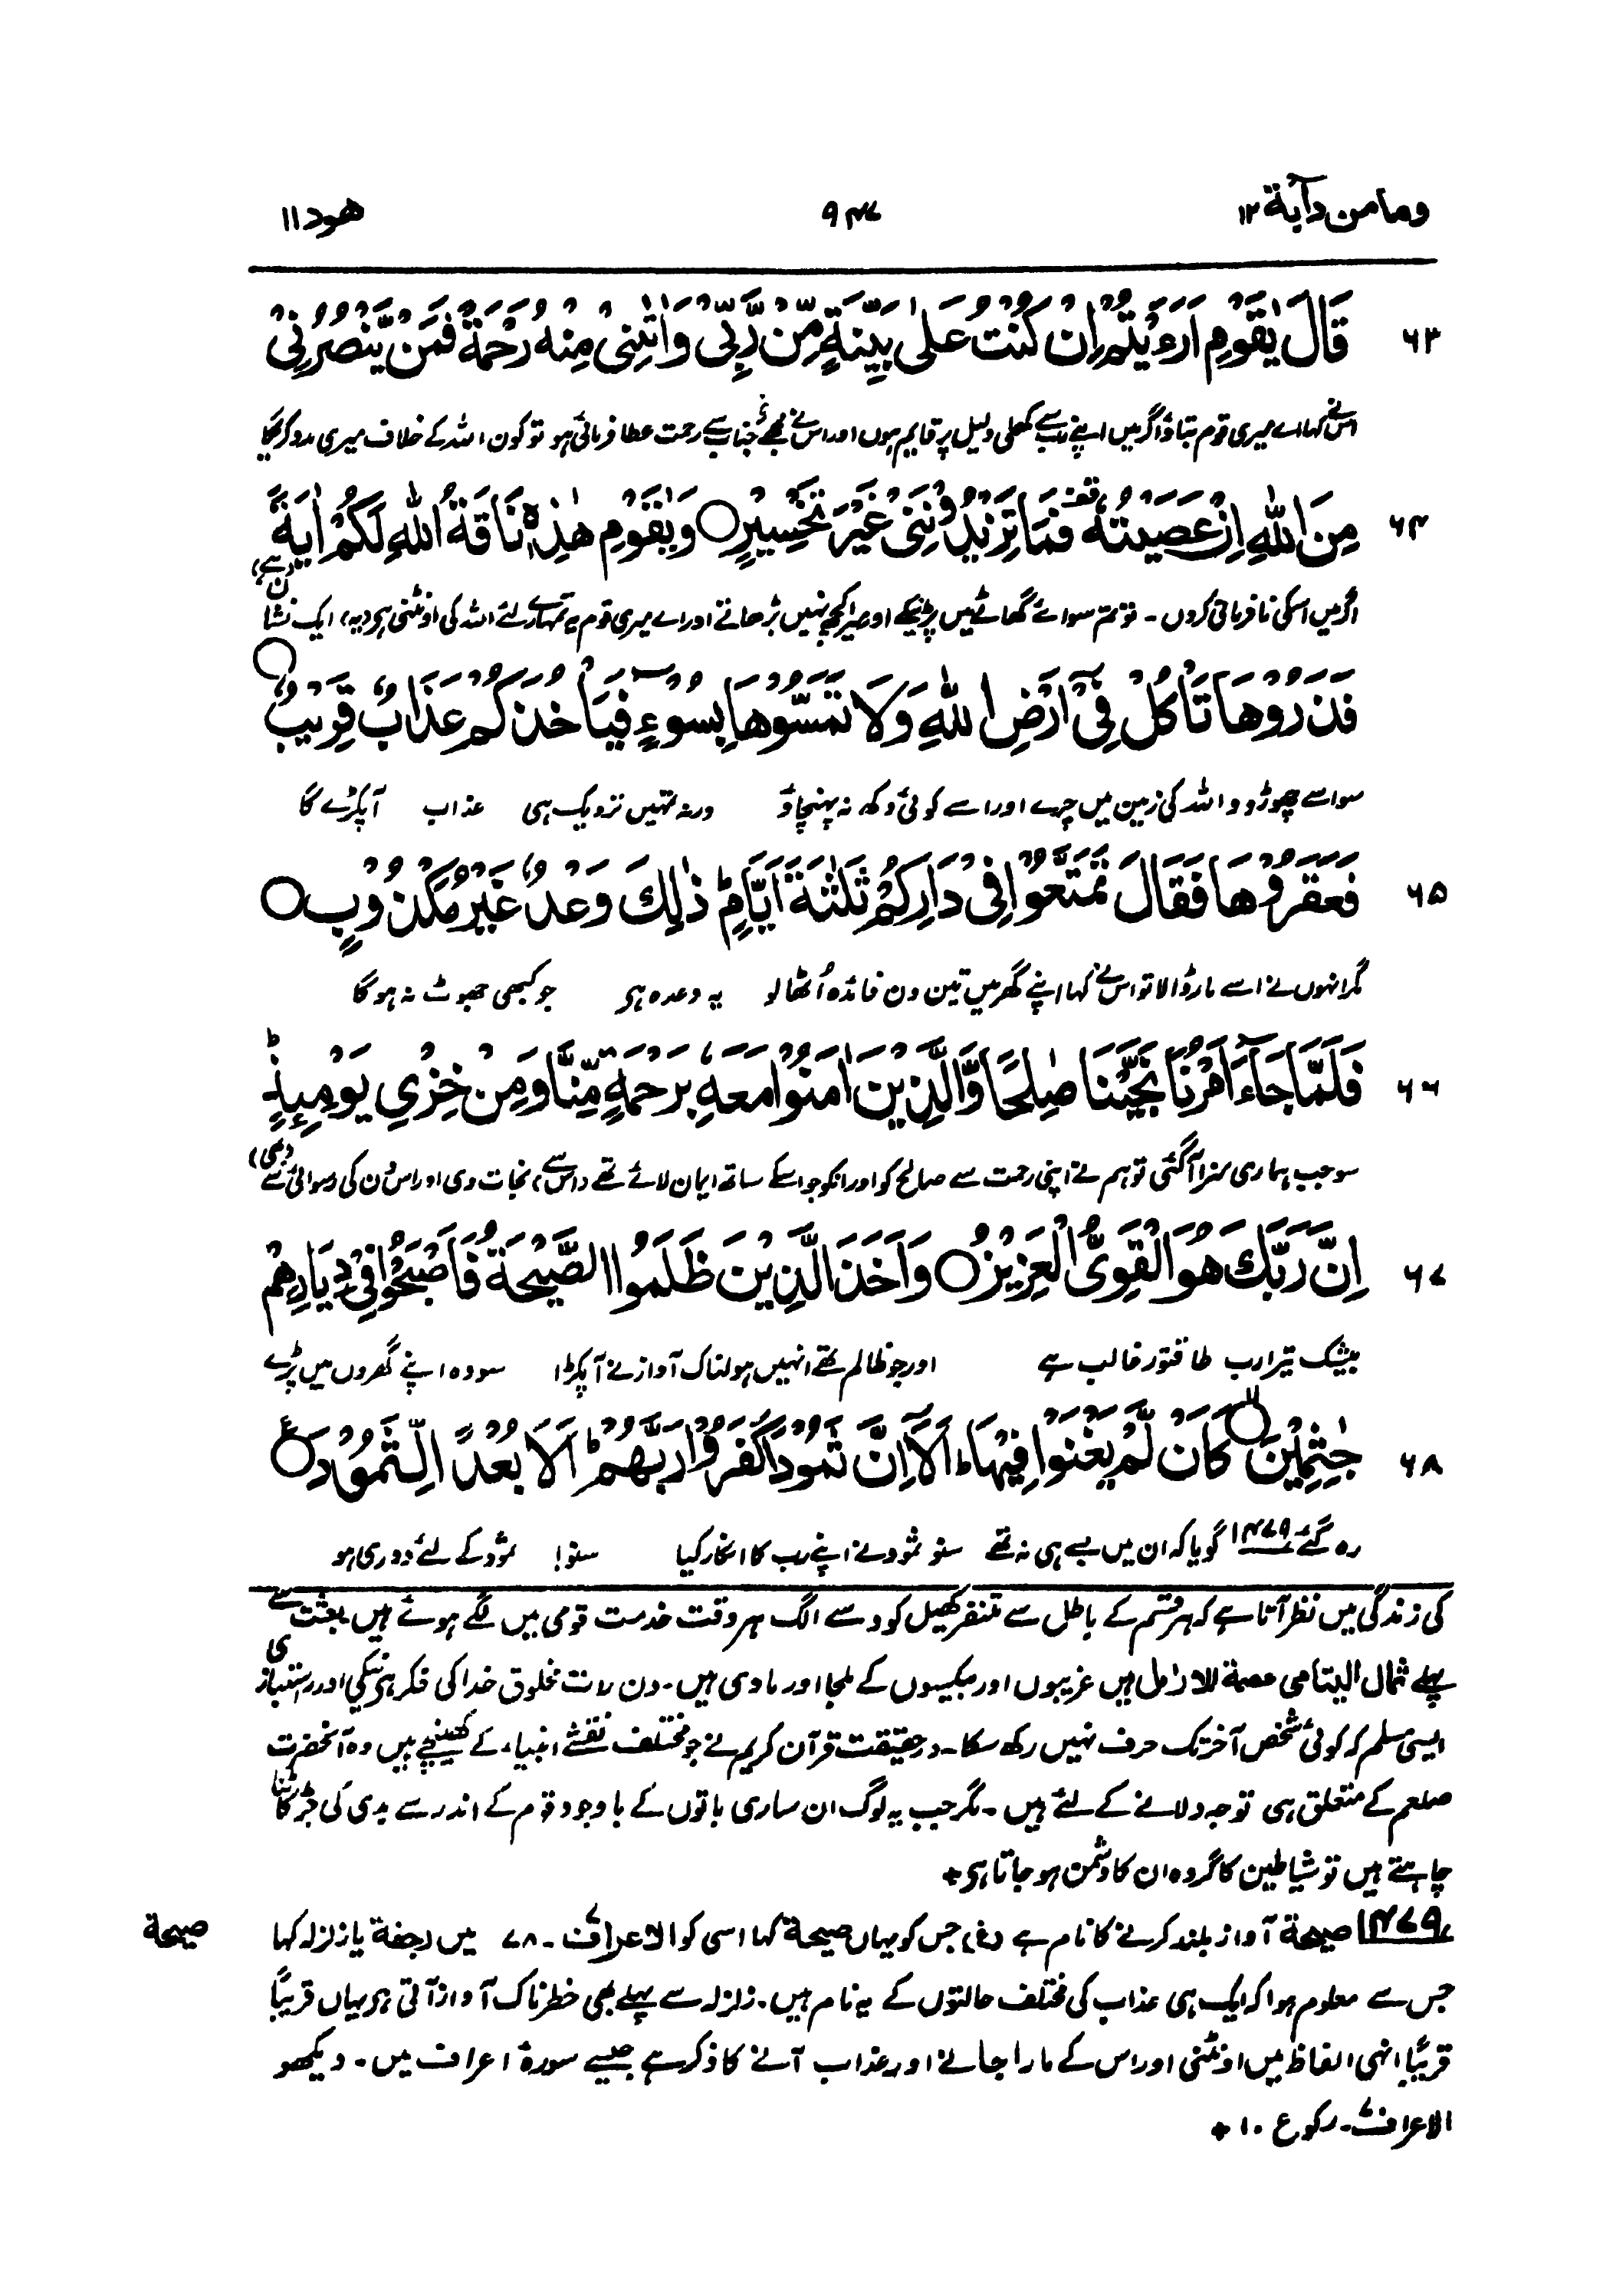 ومامن دآبة ۱۲
۹۴۷
هود ۱۱
۶۳ قَالَ يٰقَوْمِ اَرَءَيْتُمْ اِنْ كُنْتُ عَلٰى بَيِّنَةٍ مِّنْ رَّبِّيْ وَاٰتٰىنِيْ مِنْهُ رَحْمَةً فَمَنْ يَّنْصُرُنِيْ
اس نے کہا اے میری قوم بتاؤ اگر میں اپنے رب سے کھلی دلیل پر قایم ہوں اور اس نے مجھے اپنی جناب سے رحمت عطا فرمائی ہو تو کون اللہ کے خلاف میری مدد کریگا
۶۴ مِنَ اللّٰهِ اِنْ عَصَيْتُهٗ فَمَا تَزِيْدُوْنَنِيْ غَيْرَ تَخْسِيْرٍ ○ وَيٰقَوْمِ هٰذِهٖ نَاقَةُ اللّٰهِ لَكُمْ اٰيَةً
اگر میں اسکی نافرمانی کروں ۔ تو تم سوائے گھاٹے میں پڑنیکے اور میرا کچھ نہیں بڑھاتے اور اے میری قوم یہ تمہارے لئے اللہ کی اونٹنی ہی (یہ) ایک نشان (ہے)
فَذَرُوْهَا تَاْكُلْ فِيْٓ اَرْضِ اللّٰهِ وَلَا تَمَسُّوْهَا بِسُوْٓءٍ فَيَاْخُذَكُمْ عَذَابٌ قَرِيْبٌ ○
سو اسے چھوڑ دو اللہ کی زمین میں چرے اور اسے کوئی دکھ نہ پہنچاؤ ورنہ تمہیں نزدیک ہی عذاب آپکڑے گا
۶۵ فَعَقَرُوْهَا فَقَالَ تَمَتَّعُوْا فِيْ دَارِكُمْ ثَلٰثَةَ اَيَّامٍ ؕ ذٰلِكَ وَعْدٌ غَيْرُ مَكْذُوْبٍ ○
مگر انہوں نے اسے مار ڈالا تو اس نے کہا اپنے گھر میں تین دن فائدہ اُٹھا لو یہ وعدہ ہی جو کبھی جھوٹ نہ ہو گا
۶۶ فَلَمَّا جَآءَ اَمْرُنَا نَجَّيْنَا صٰلِحًا وَّالَّذِيْنَ اٰمَنُوْا مَعَهٗ بِرَحْمَةٍ مِّنَّا وَمِنْ خِزْيِ يَوْمِئِذٍ ؕ
سو جب ہماری سزا آگئی تو ہم نے اپنی رحمت سے صالح کو اور انکو جو اسکے ساتھ ایمان لائے تھے (اس سے) نجات دی اور اس دن کی رسوائی سے (بھی)
۶۷ اِنَّ رَبَّكَ هُوَ الْقَوِيُّ الْعَزِيْزُ ○ وَاَخَذَ الَّذِيْنَ ظَلَمُوا الصَّيْحَةُ فَاَصْبَحُوْا فِيْ دِيَارِهِمْ
بیشک تیرا رب طاقتور غالب ہے اور جو ظالم تھے انہیں ہولناک آواز نے آپکڑا سو وہ اپنے گھروں میں پڑے
۶۸ جٰثِمِيْنَ ○ كَاَنْ لَّمْ يَغْنَوْا فِيْهَا ؕ اَلَآ اِنَّ ثَمُوْدَا۠ كَفَرُوْا رَبَّهُمْ ؕ اَلَا بُعْدًا لِّثَمُوْدَ ○
رہ گئے ۱۴۷۹ گویا کہ ان میں بسے ہی نہ تھے سنو ثمود نے اپنے رب کا انکار کیا سنو! ثمود کے لئے دوری ہو
کی زندگی میں نظر آتا ہے کہ ہر قسم کے باطل سے متنفر کھیل کود سے الگ ہر وقت خدمت قومی میں لگے ہوئے ہیں بعثت سے
پہلے ثمال الیتامی عصمة للارامل ہیں غریبوں اور بیکسوں کے ملجا اور ماوی ہیں ۔ دن رات مخلوق خدا کی فکر ہی نیکی اور راستبازی
ایسی مسلم کہ کوئی شخص آخر تک حرف نہیں رکھ سکا ۔ درحقیقت قرآن کریم نے جو مختلف نقشے انبیاء کے کھینچے ہیں وہ آنحضرت
صلعم کے متعلق ہی توجہ دلانے کے لئے ہیں ۔ مگر جب یہ لوگ ان ساری باتوں کے باوجود قوم کے اندر سے بدی کی جڑ کاٹنا
چاہتے ہیں تو شیاطین کا گروہ ان کا دشمن ہو جاتا ہی +
صیحة
۱۴۷۹ صیحة آواز بلند کرنے کا نام ہے (غ) جس کو یہاں صیحة کہا اسی کو الاعراف ۔ ۷۸ میں رجفة یا زلزلہ کہا
جس سے معلوم ہوا کہ ایک ہی عذاب کی مختلف حالتوں کے یہ نام ہیں ۔ زلزلہ سے پہلے بھی خطرناک آواز آتی ہی یہاں قریباً
قریباً انہی الفاظ میں اونٹنی اور اس کے مارا جانے اور عذاب آنے کا ذکر ہے جیسے سورۂ اعراف میں ۔ دیکھو
الاعراف ۔ رکوع ۱۰ +